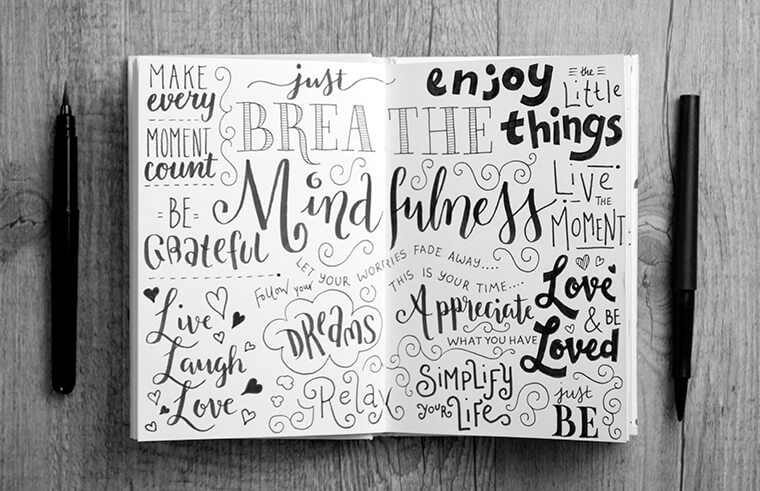 MAKE
every
MOMENT
count
just
BREATHE
enjoy
the
Little
things
Mindfulness
LIVE
THE
MOMENT
=BE=
Grateful
LET YOUR WORRIES FADE AWAY....
THIS IS YOUR TIME....
Follow your
DREAMS
Appreciate
WHAT YOU HAVE
Love
& BE
Loved
Live
Laugh
Love
Relax
SIMPLIFY
YOUR LIFE
just
BE